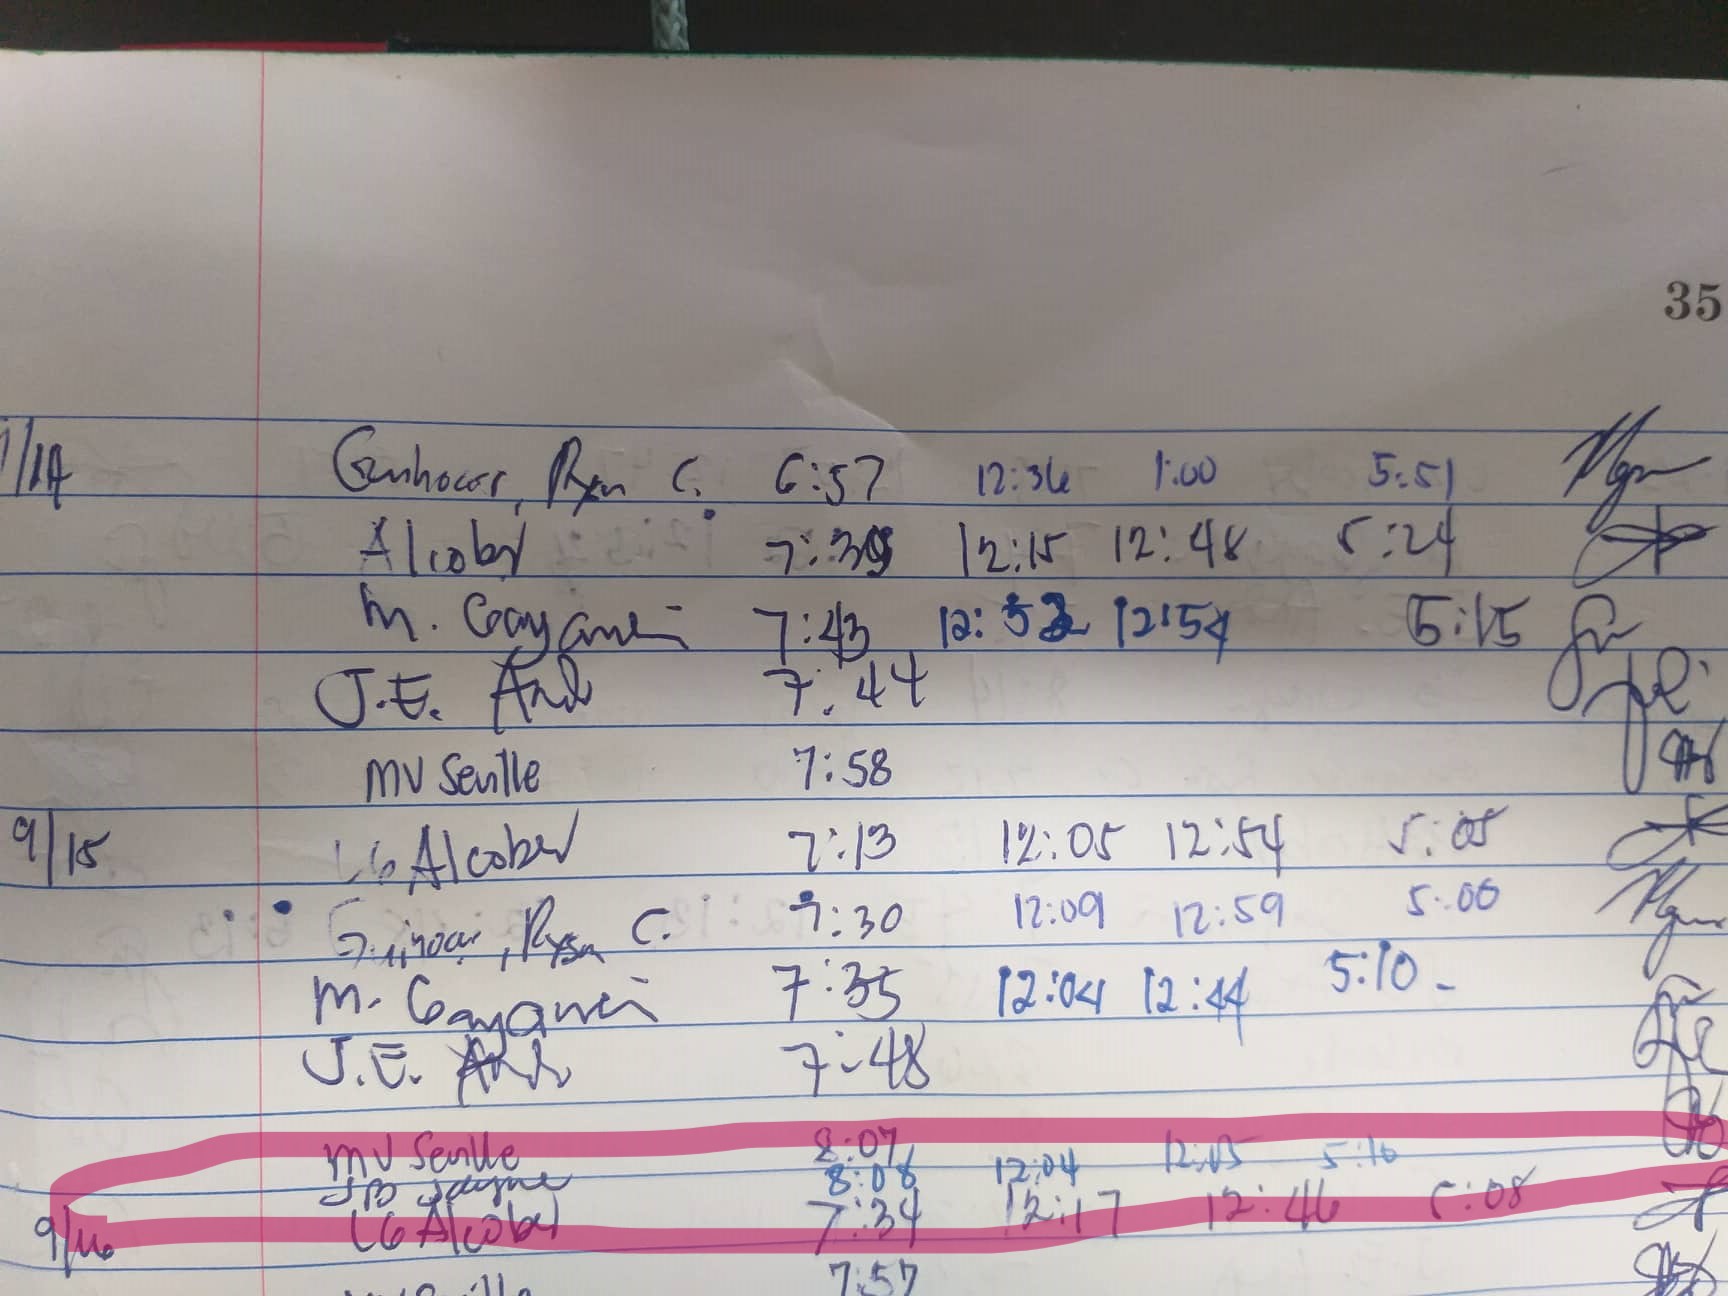 35
/14 Ryan C. 6:57 12:36 1:00 5:51
Alcober 7:39 12:15 12:48 5:24
M. 7:43 12:52 12:54 5:15
J.E. 7:44
MV Seville 7:58
9/15 LG Alcober 7:13 12:05 12:54 5:05
Ryan C. 7:30 12:09 12:59 5:00
M. 7:35 12:04 12:44 5:10
J.E. 7:48
MV Seville 8:07
JB Jayme 8:08 12:04 12:05 5:10
9/16 LG Alcober 7:34 12:17 12:46 5:08
MV Seville 7:57